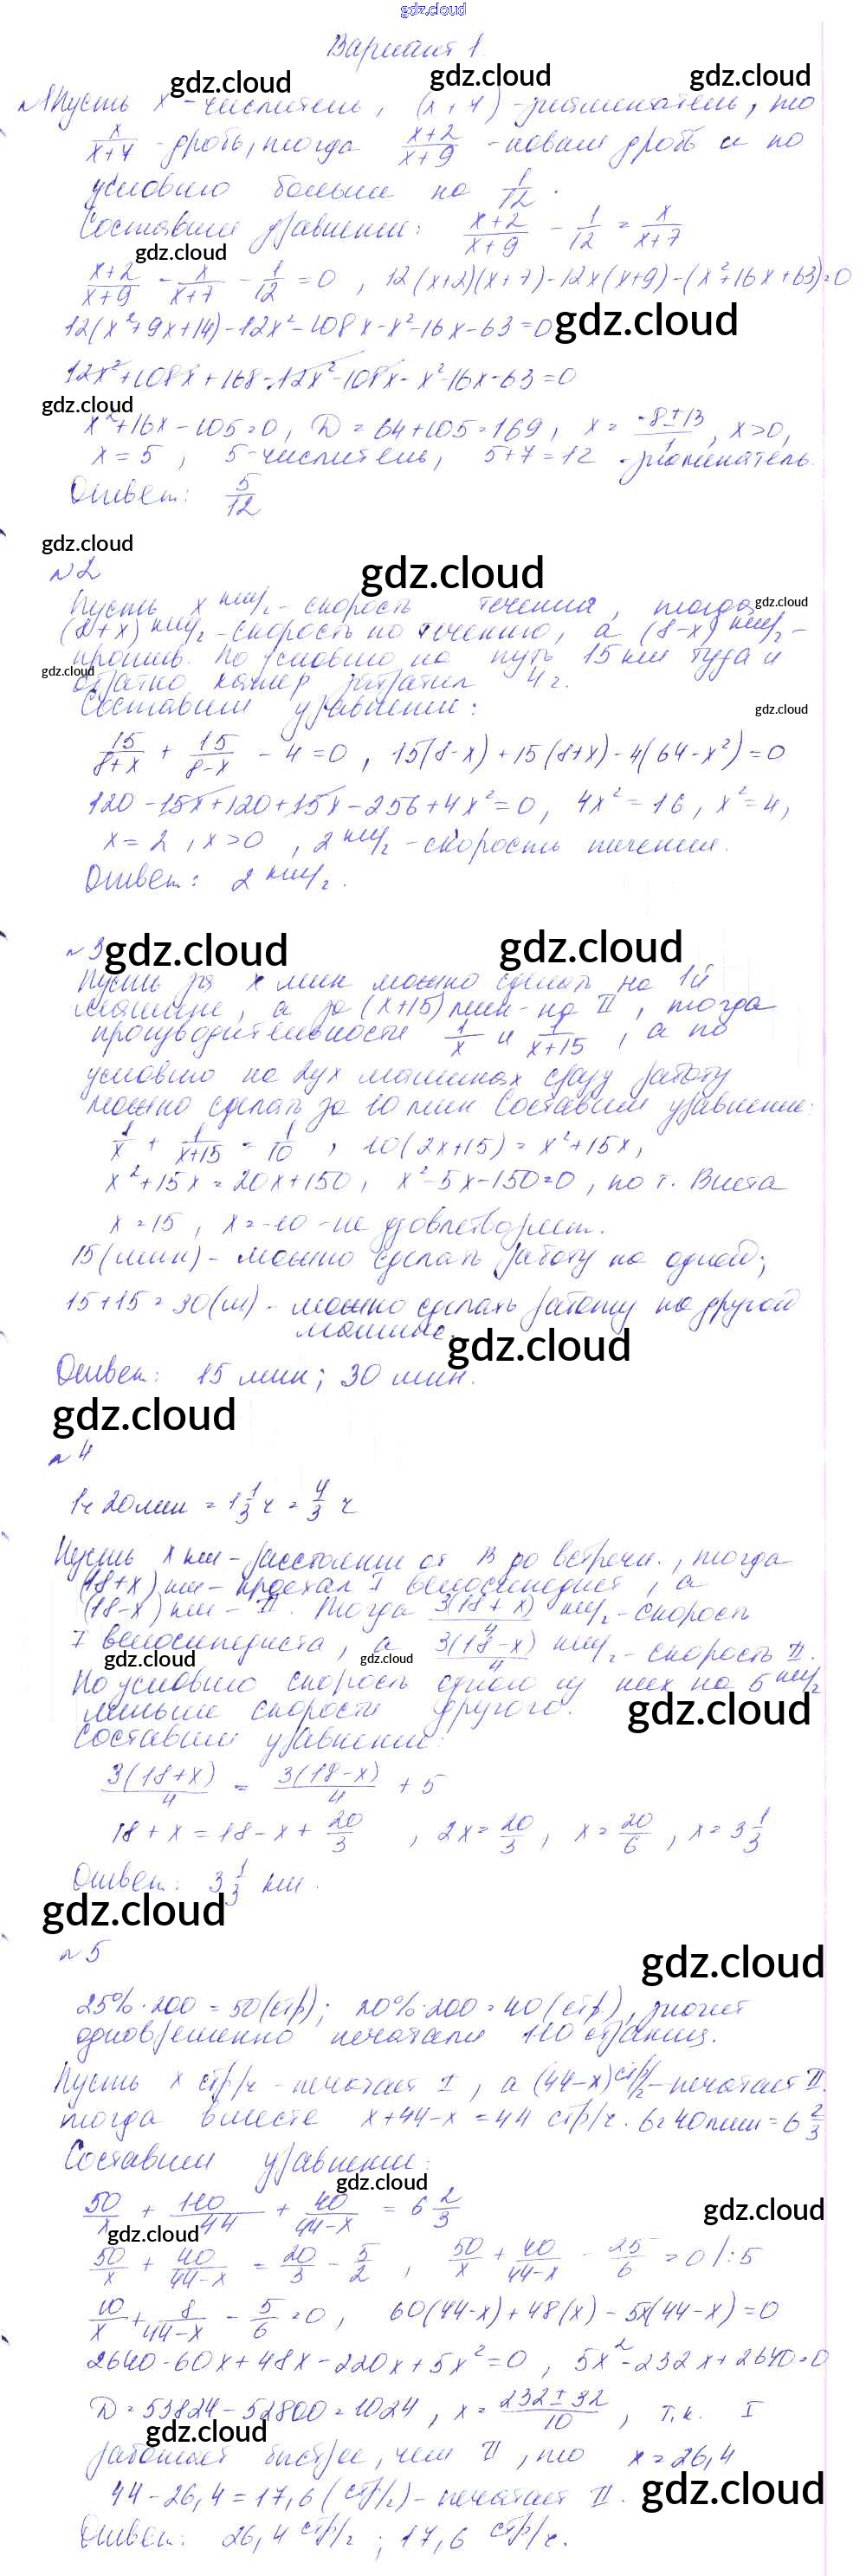 gdz.cloud
Вариант 1
gdz.cloud gdz.cloud gdz.cloud
№1 Пусть x - числитель, (x+7) - знаменатель, то
x/(x+7) - дробь, тогда (x+2)/(x+9) - новая дробь и по
условию больше на 1/12.
Составим уравнение: (x+2)/(x+9) - 1/12 = x/(x+7)
gdz.cloud
(x+2)/(x+9) - x/(x+7) - 1/12 = 0, 12(x+2)(x+7) - 12x(x+9) - (x²+16x+63) = 0
12(x²+9x+14) - 12x² - 108x - x² - 16x - 63 = 0
gdz.cloud
12x² + 108x + 168 - 12x² - 108x - x² - 16x - 63 = 0
gdz.cloud
x² + 16x - 105 = 0, D = 64 + 105 = 169, x = (-8 ± 13)/1, x > 0,
x = 5, 5 - числитель, 5 + 7 = 12 - знаменатель.
Ответ: 5/12
gdz.cloud
№2
gdz.cloud
Пусть x км/ч - скорость течения, тогда
gdz.cloud
(8+x) км/ч - скорость по течению, а (8-x) км/ч -
против. По условию на путь 15 км туда и
gdz.cloud
обратно катер затратил 4 ч.
Составим уравнение:
gdz.cloud
15/(8+x) + 15/(8-x) - 4 = 0, 15(8-x) + 15(8+x) - 4(64-x²) = 0
120 - 15x + 120 + 15x - 256 + 4x² = 0, 4x² = 16, x² = 4,
x = 2, x > 0, 2 км/ч - скорость течения.
Ответ: 2 км/ч.
№3
gdz.cloud gdz.cloud
Пусть за x мин можно сделать на 1й
машине, а за (x+15) мин - на II, тогда
производительности 1/x и 1/(x+15), а по
условию на двух машинах сразу работу
можно сделать за 10 мин. Составим уравнение:
1/x + 1/(x+15) = 1/10, 10(2x+15) = x² + 15x,
x² + 15x = 20x + 150, x² - 5x - 150 = 0, по т. Виета
x = 15, x = -10 - не удовлетворяет.
15 (мин) - можно сделать работу на одной;
15 + 15 = 30 (м) - можно сделать работу на другой
машине.
gdz.cloud
Ответ: 15 мин; 30 мин.
gdz.cloud
№4
1ч 20мин = 1 1/3 ч = 4/3 ч
Пусть x км - расстояние от B до встречи, тогда
(18+x) км - проехал I велосипедист, а
(18-x) км - II. Тогда 3(18+x)/4 км/ч - скорость
I велосипедиста, а 3(18-x)/4 км/ч - скорость II.
gdz.cloud gdz.cloud
По условию скорость одного из них на 5 км/ч
меньше скорости другого.
gdz.cloud
Составим уравнение:
3(18+x)/4 = 3(18-x)/4 + 5
18 + x = 18 - x + 20/3, 2x = 20/3, x = 20/6, x = 3 1/3
Ответ: 3 1/3 км.
gdz.cloud
№5
gdz.cloud
25%·200 = 50 (стр); 20%·200 = 40 (стр), значит
одновременно печатали 110 страниц.
Пусть x стр/ч - печатает I, а (44-x) стр/ч - печатает II.
тогда вместе x + 44 - x = 44 стр/ч. 6ч 40мин = 6 2/3
Составим уравнение:
gdz.cloud
50/x + 110/44 + 40/(44-x) = 6 2/3
gdz.cloud
gdz.cloud
50/x + 40/(44-x) = 20/3 - 5/2, 50/x + 40/(44-x) - 25/6 = 0 |:5
10/x + 8/(44-x) - 5/6 = 0, 60(44-x) + 48(x) - 5x(44-x) = 0
2640 - 60x + 48x - 220x + 5x² = 0, 5x² - 232x + 2640 = 0
D = 53824 - 52800 = 1024, x = (232 ± 32)/10, т.к. I
gdz.cloud
работает быстрее, чем II, то x = 26,4
44 - 26,4 = 17,6 (стр/ч) - печатает II.
gdz.cloud
Ответ: 26,4 стр/ч; 17,6 стр/ч.